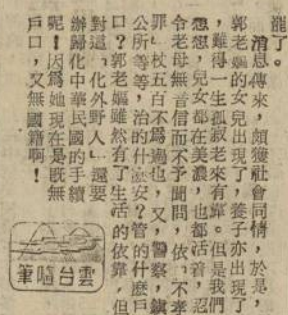 罷了。
消息傳來，頗獲社會同情，於是，
郭老嫗的女兒出現了，養子亦出現了
，難得一生孤寂老來有靠。但是我們
想想，兒女都在美濃，也都活着，忍
令老母無音信而不予聞問，依「不孝
罪」杖五百不爲過也，又，警察，鎭
公所等等，治的什麽安？管的什麽戶
口？郭老嫗雖然有了生活的依靠，但
對這「化外野人」還要
辦歸化中華民國的手續
呢！因爲她現在是既無
戶口，又無國籍啊！
雲台隨筆